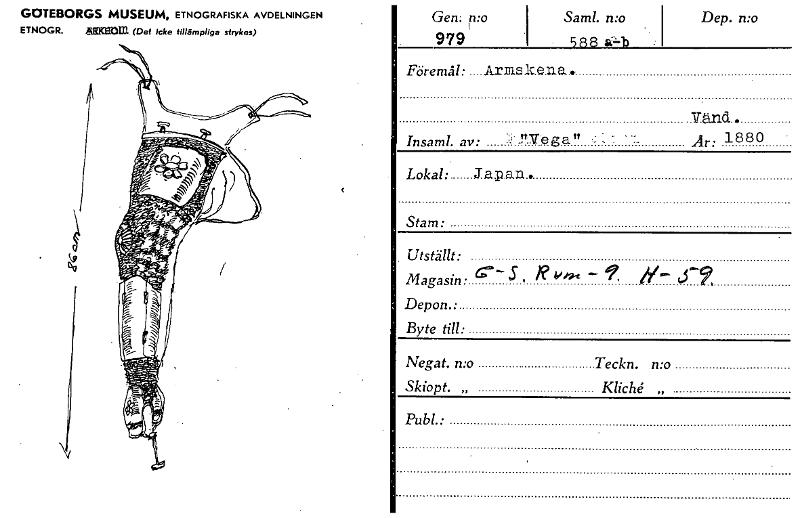 GÖTEBORGS MUSEUM, ETNOGRAFISKA AVDELNINGEN
ETNOGR. ARKEOL. (Det icke tillämpliga strykes)
86 cm
Gen: n:o Saml. n:o Dep. n:o
979 588 a-b
Föremål: Armskena.
Vänd.
Insaml. av: "Vega" År: 1880
Lokal: Japan.
Stam:
Utställt:
Magasin: G-S. Rum-9. H-59.
Depon.:
Byte till:
Negat. n:o Teckn. n:o
Skiopt. „ Kliché „
Publ.: